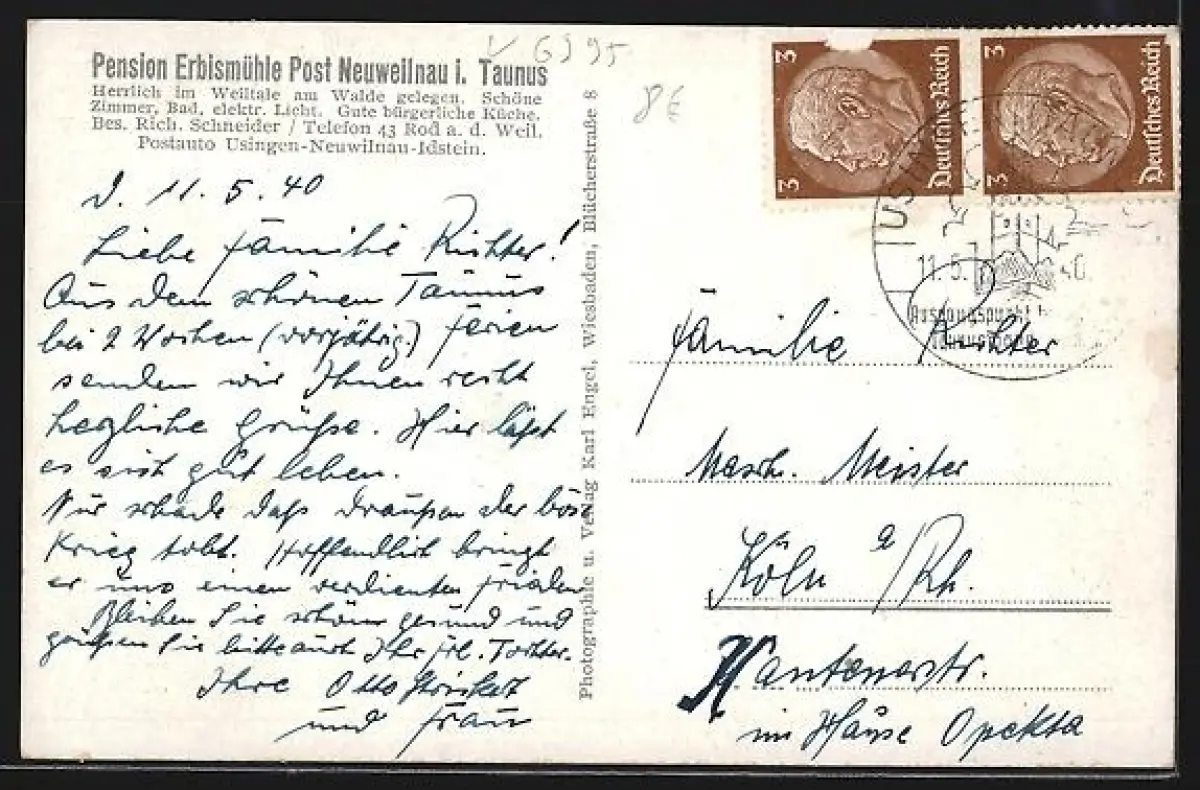 V 6995
8€
Pension Erbismühle Post Neuweilnau i. Taunus
Herrlich im Weiltale am Walde gelegen. Schöne
Zimmer, Bad, elektr. Licht. Gute bürgerliche Küche.
Bes. Rich. Schneider / Telefon 43 Rod a. d. Weil.
Postauto Usingen-Neuwilnau-Idstein.
d. 11. 5. 40
Liebe Familie Richter!
Aus dem schönen Taunus
bei 2 Wochen (vorjährig.) Ferien
senden wir Ihnen recht
herzliche Grüße. Hier läßt
es sich gut leben.
Nur schade daß draußen der böse
Krieg tobt. Hoffentlich bringt
er uns einen verdienten Frieden
Bleiben Sie schön gesund und
grüßen Sie bitte auch Ihr frl. Tochter.
Ihre Otto
und Frau
Photographie u. Verlag Karl Engel, Wiesbaden, Blücherstraße 8
3 Deutsches Reich 3
3 Deutsches Reich 3
USIN
11.5. 40
Familie Richter
Masch. Meister
Köln a/Rh.
Xantenerstr.
im Hause Opekta